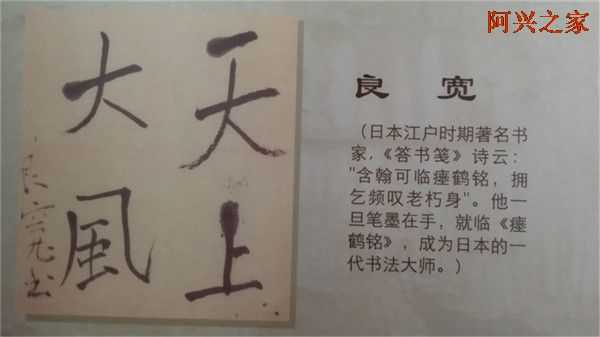 阿兴之家
天上
大風
良寛書
良 宽
(日本江户时期著名书
家,《答书笺》诗云:
"含翰可临瘗鹤铭,拥
乞频叹老朽身"。他一
旦笔墨在手,就临《瘗
鹤铭》,成为日本的一
代书法大师。)